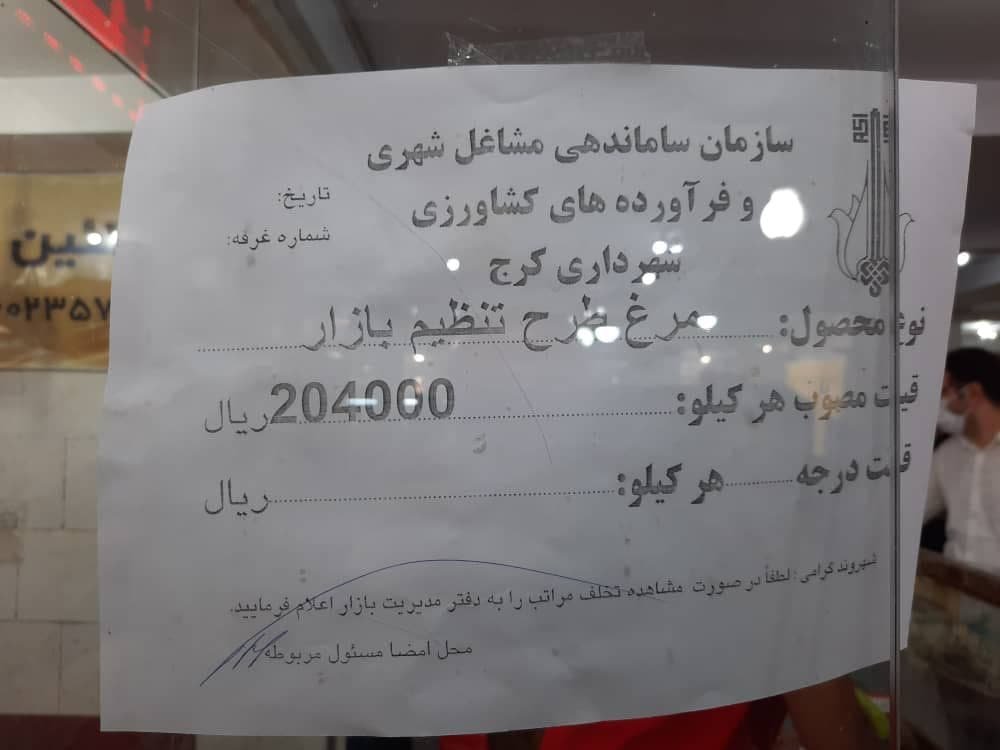 سازمان ساماندهی مشاغل شهری
و فرآورده های کشاورزی
شهرداری کرج
تاریخ:
شماره غرفه:
نوع محصول: مرغ طرح تنظیم بازار
قیمت مصوب هر کیلو: 204000 ریال
قیمت درجه ........ هر کیلو: ........ ریال
شهروند گرامی: لطفاً در صورت مشاهده تخلف مراتب را به دفتر مدیریت بازار اعلام فرمایید.
محل امضا مسئول مربوطه